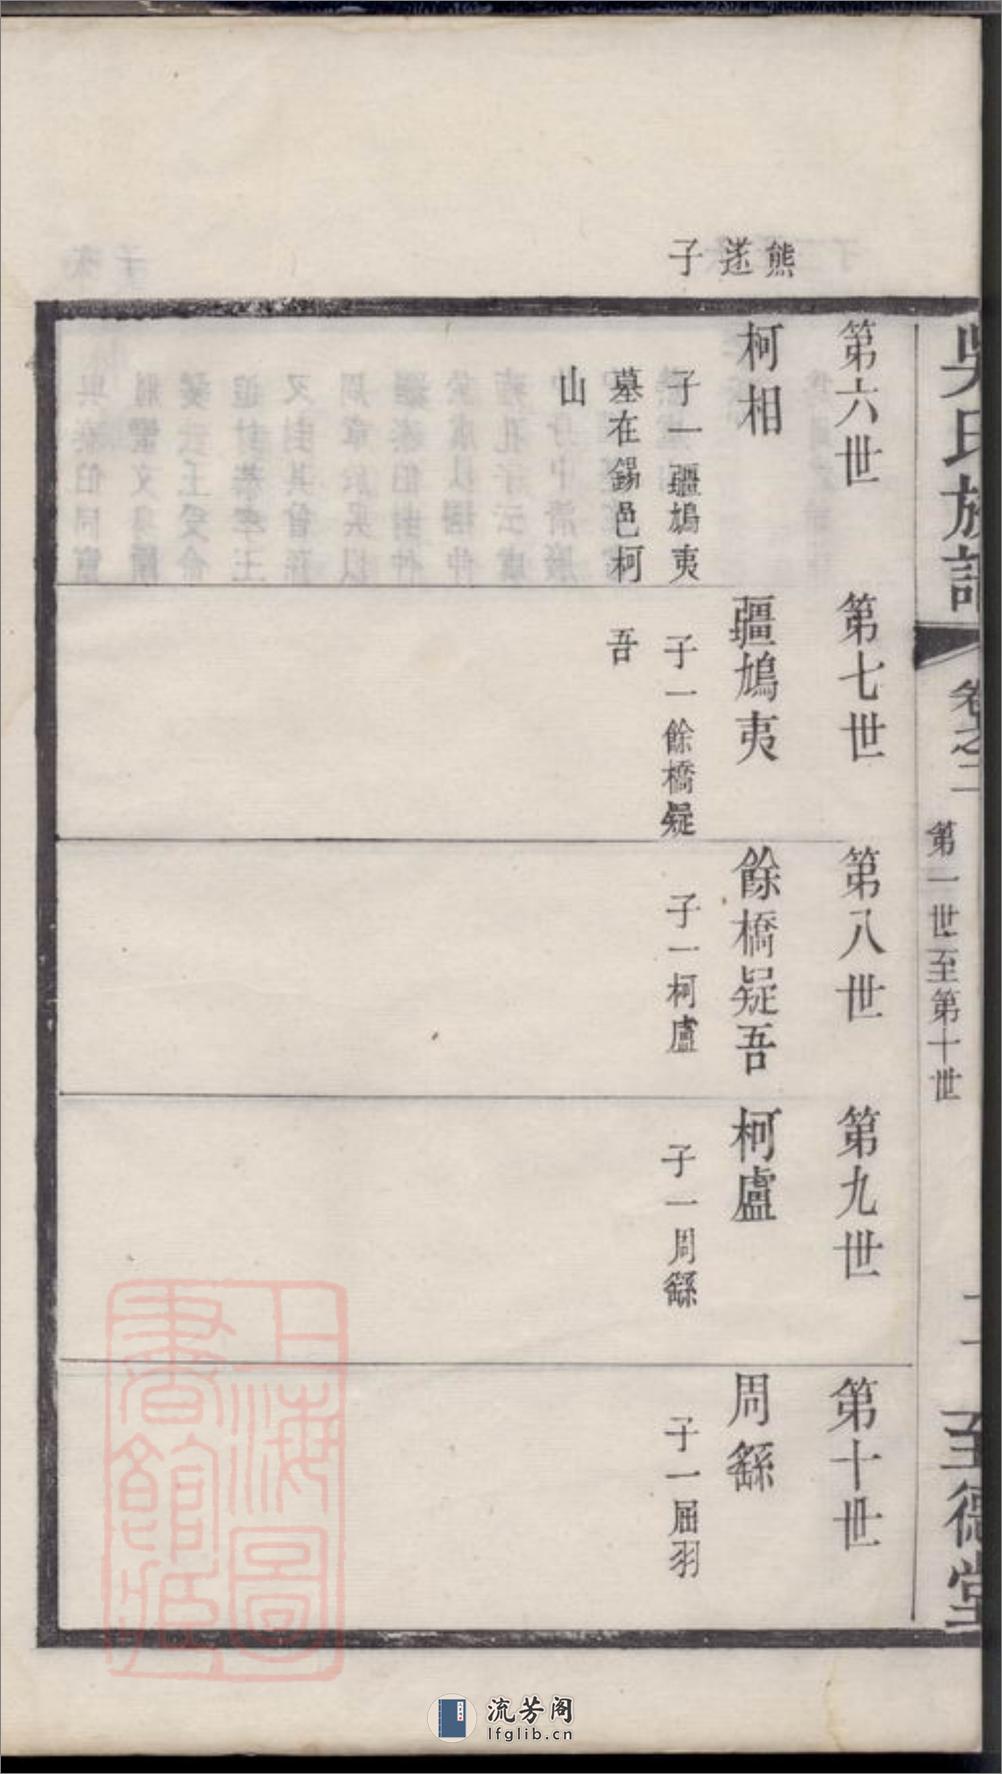 吳氏族譜
卷之二
第一世至第十世
十一
至德堂
熊遂子
第六世
柯相
子一疆鳩夷
墓在錫邑柯
山
第七世
疆鳩夷
子一餘橋疑
吾
第八世
餘橋疑吾
子一柯盧
第九世
柯盧
子一周繇
第十世
周繇
子一屈羽
上海圖
書館藏
流芳阁
lfglib.cn